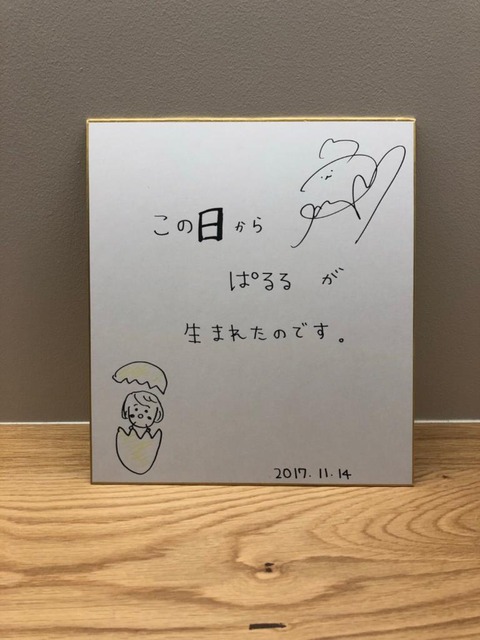 この日から
ぱるるが
生まれたのです。
2017.11.14